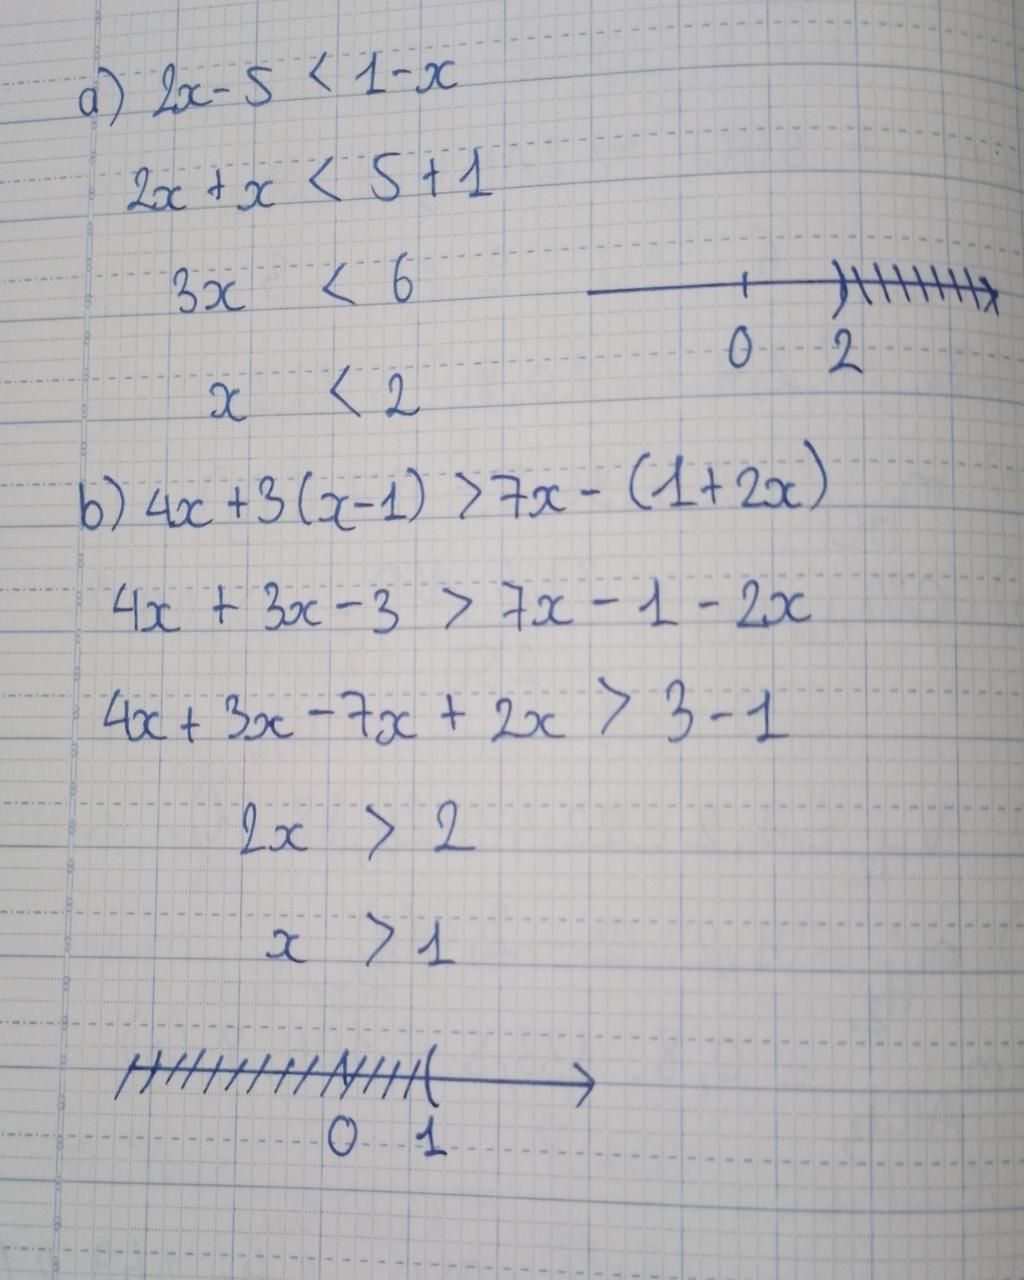 a) 2x - 5 < 1 - x
2x + x < 5 + 1
3x < 6
0 2
x < 2
b) 4x + 3(x-1) > 7x - (1 + 2x)
4x + 3x - 3 > 7x - 1 - 2x
4x + 3x - 7x + 2x > 3 - 1
2x > 2
x > 1
0 1